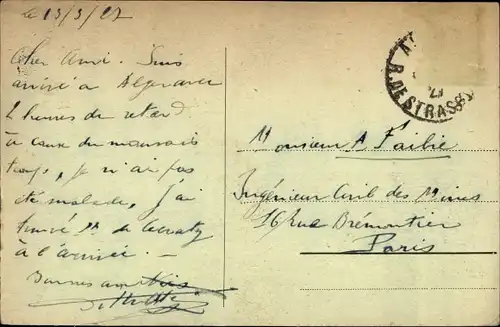 le 13/3/27
Cher Ami. Suis
arrivé à Alger avec
2 heures de retard
à cause du mauvais
temps, je n'ai pas
été malade, j'ai
trouvé M. de
à l'arrivée.
Bonnes amitiés
R. DE STRASB
27
Monsieur A Faibie
Ingénieur Civil des Mines
16 Rue Brémontier
Paris